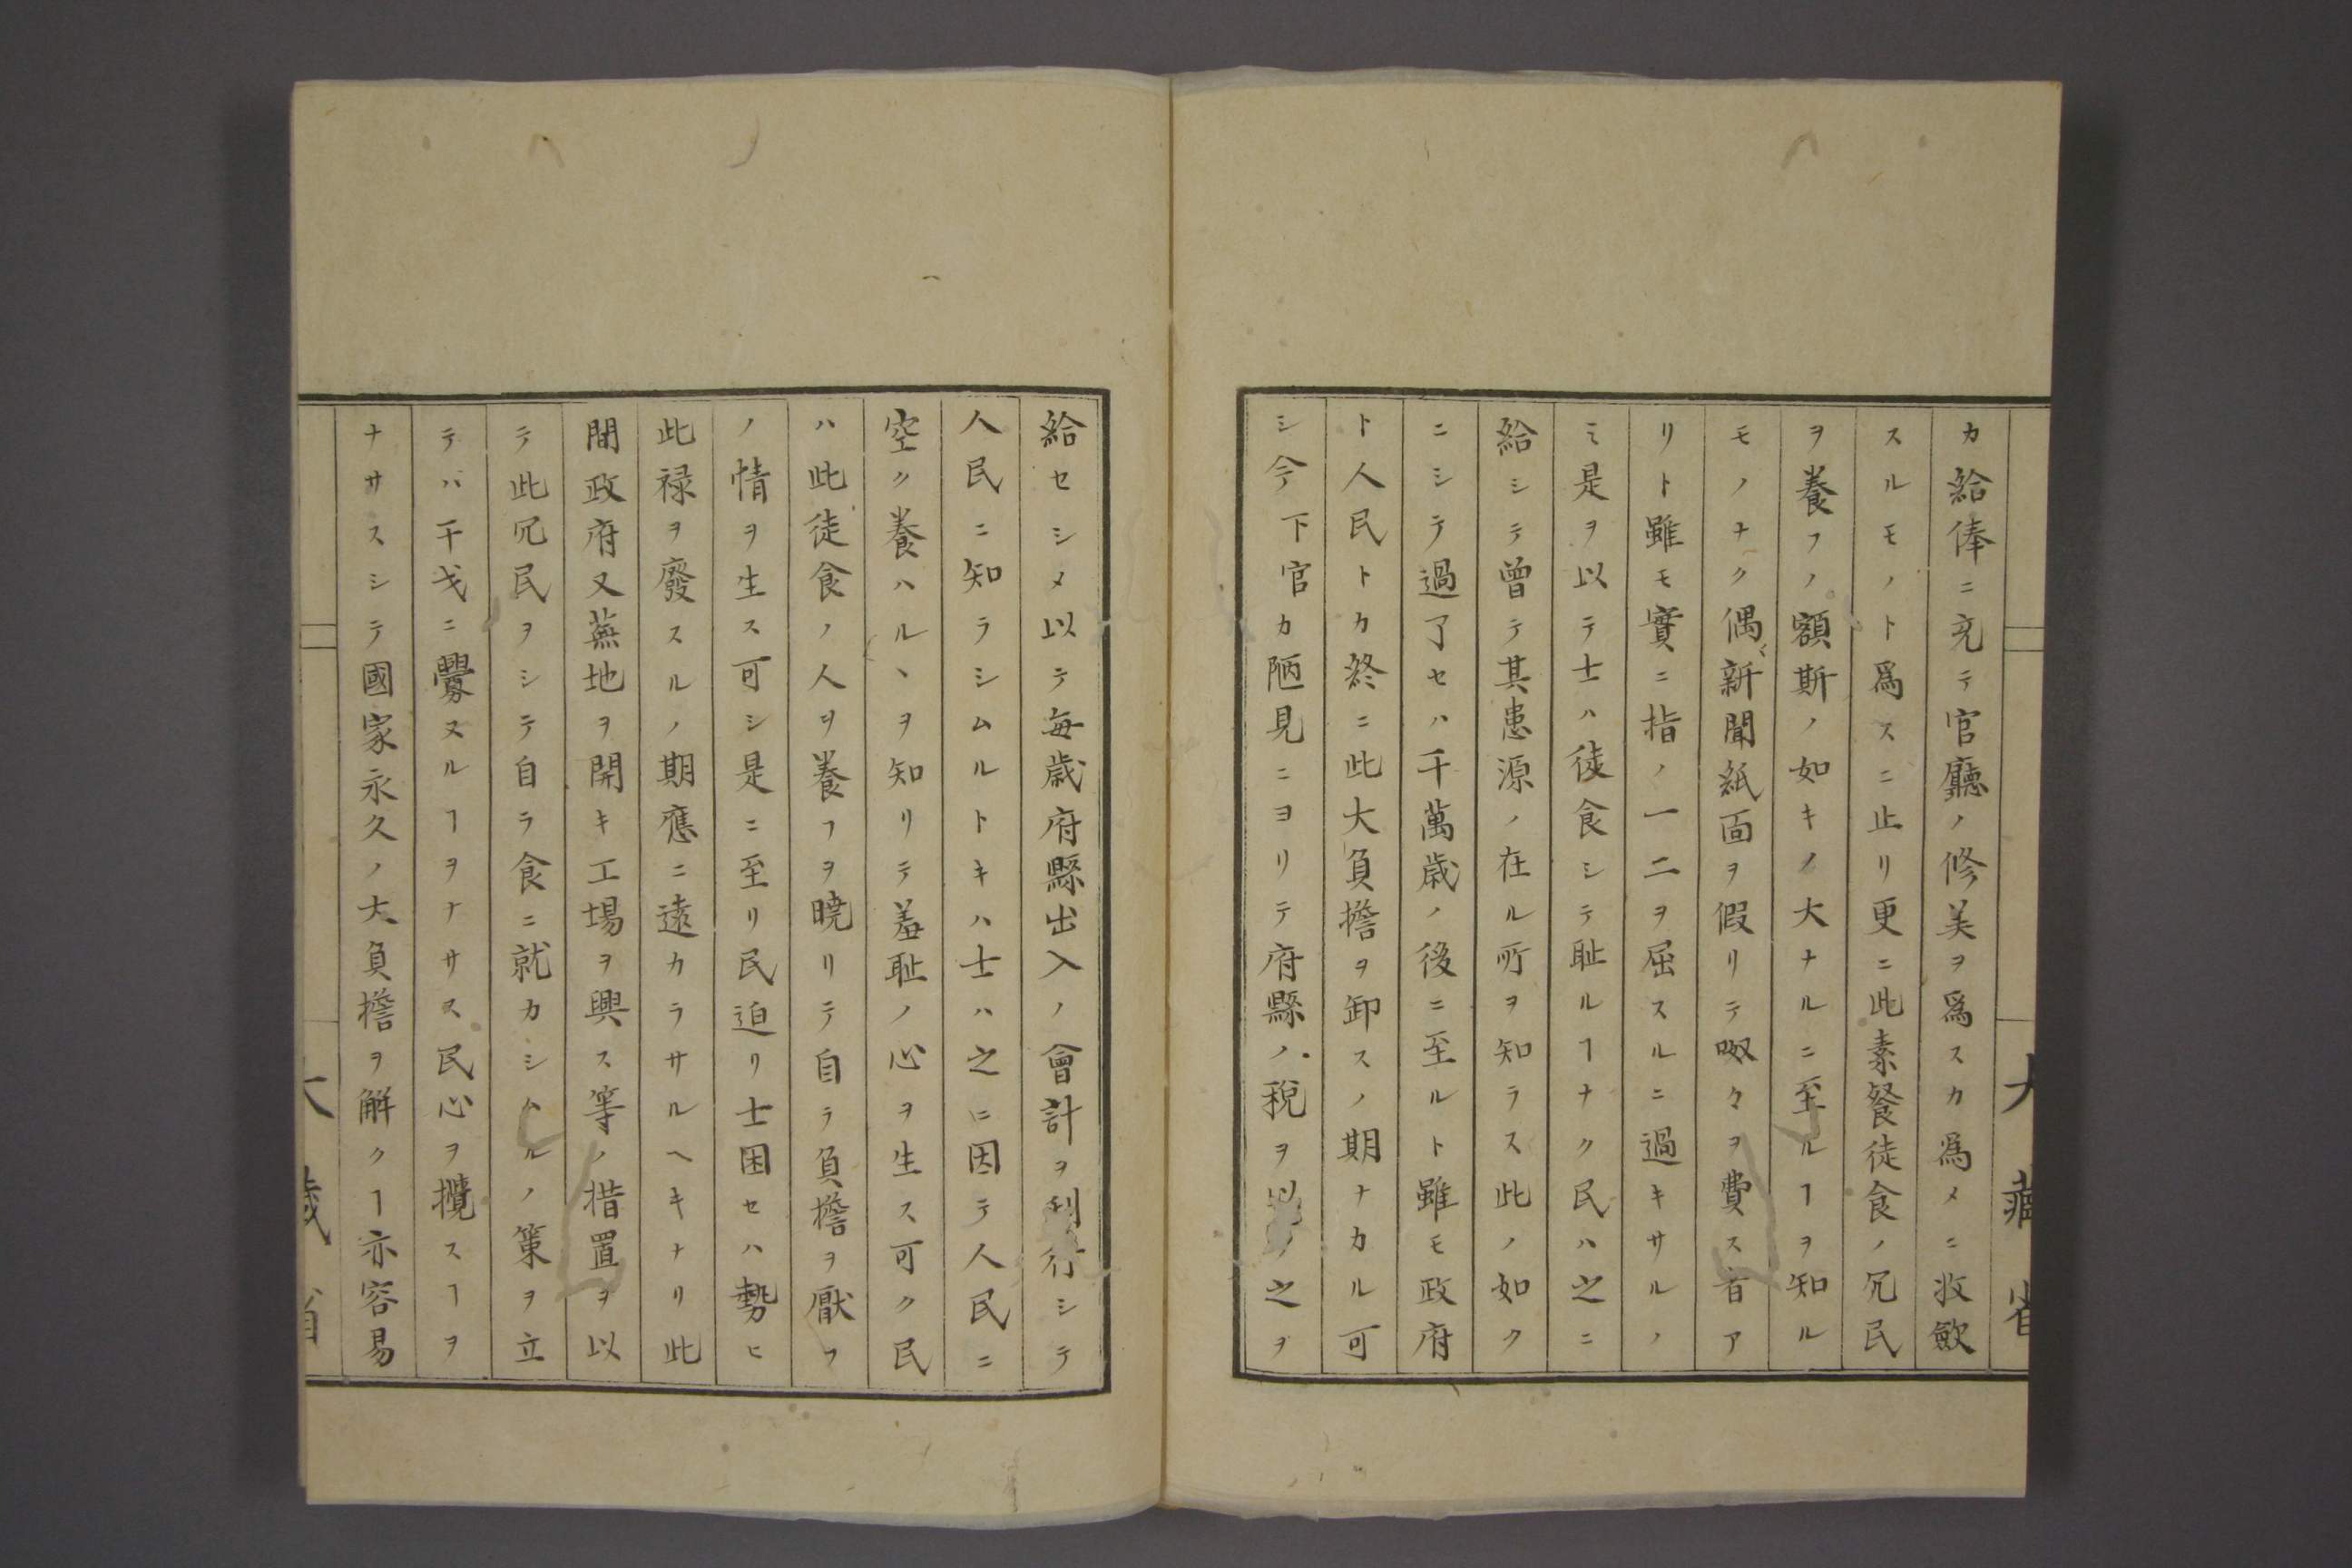 大藏省
カ給俸ニ充テ官廳ノ修美ヲ爲スカ爲メニ收歛
スルモノト爲スニ止リ更ニ此素餐徒食ノ冗民
ヲ養フノ額斯ノ如キノ大ナルニ至ルヿヲ知ル
モノナク偶〻新聞紙面ヲ假リテ呶々ヲ費ス者ア
リト雖モ實ニ指ノ一二ヲ屈スルニ過キサルノ
ミ是ヲ以テ士ハ徒食シテ耻ルヿナク民ハ之ニ
給シテ曽テ其患源ノ在ル所ヲ知ラス此ノ如ク
ニシテ過了セハ千萬歳ノ後ニ至ルト雖モ政府
ト人民トカ終ニ此大負擔ヲ卸スノ期ナカル可
シ今下官カ陋見ニヨリテ府縣ノ税ヲ以之ヲ
給セシメ以テ毎歳府縣出入ノ會計ヲ刊行シテ
人民ニ知ラシムルトキハ士ハ之ニ因テ人民ニ
空ク養ハルヽヲ知リテ羞耻ノ心ヲ生ス可ク民
ハ此徒食ノ人ヲ養フヲ曉リテ自ラ負擔ヲ厭フ
ノ情ヲ生ス可シ是ニ至リ民迫リ士困セハ勢ヒ
此禄ヲ廢スルノ期應ニ遠カラサルヘキナリ此
間政府又蕪地ヲ開キ工場ヲ興ス等ノ措置ヲ以
テ此冗民ヲシテ自ラ食ニ就カシムルノ策ヲ立
テバ干戈ニ釁ヌルヿヲナサス民心ヲ攪スヿヲ
ナサスシテ國家永久ノ大負擔ヲ解クヿ亦容易
大藏省